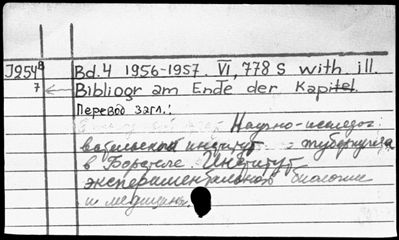 J254⁸ Bd.4 1956-1957. VI, 778 S with ill.
7 Bibliogr am Ende der Kapitel.
Перевод загл.:
Научно-исследо-
вательский институт туберкулеза
в Борстеле. Институт
экспериментальной биологии
и медицины.